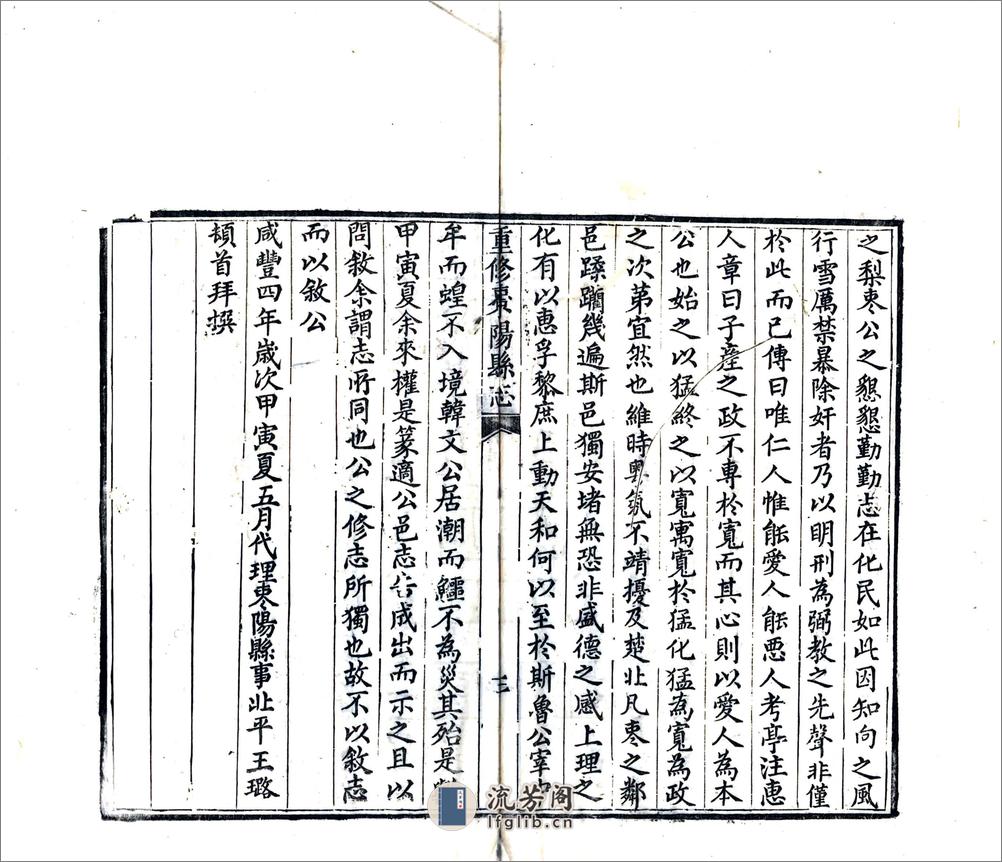 之梨枣公之懇懇勤勤志在化民如此因知向之風
行雪厲禁暴除奸者乃以明刑為弼教之先聲非僅
於此而已傳曰唯仁人惟能愛人能悪人考亭注惠
人章曰子產之政不專於寬而其心則以愛人為本
公也始之以猛終之以寬寓寬於猛化猛為寬為政
之次第宜然也維時粵氛不靖擾及楚北凡枣之鄰
邑蹂躪幾遍斯邑獨安堵無恐非盛德之感上理之
化有以惠孚黎庶上動天和何以至於斯魯公宰中
重修枣陽縣志
三
牟而蝗不入境韓文公居潮而鱷不為災其殆是
甲寅夏余來權是篆適公邑志告成出而示之且以
問敘余謂志所同也公之修志所獨也故不以敘志
而以敘公
咸豐四年歲次甲寅夏五月代理枣陽縣事北平王璐
頓首拜撰
流芳阁
lfglib.cn